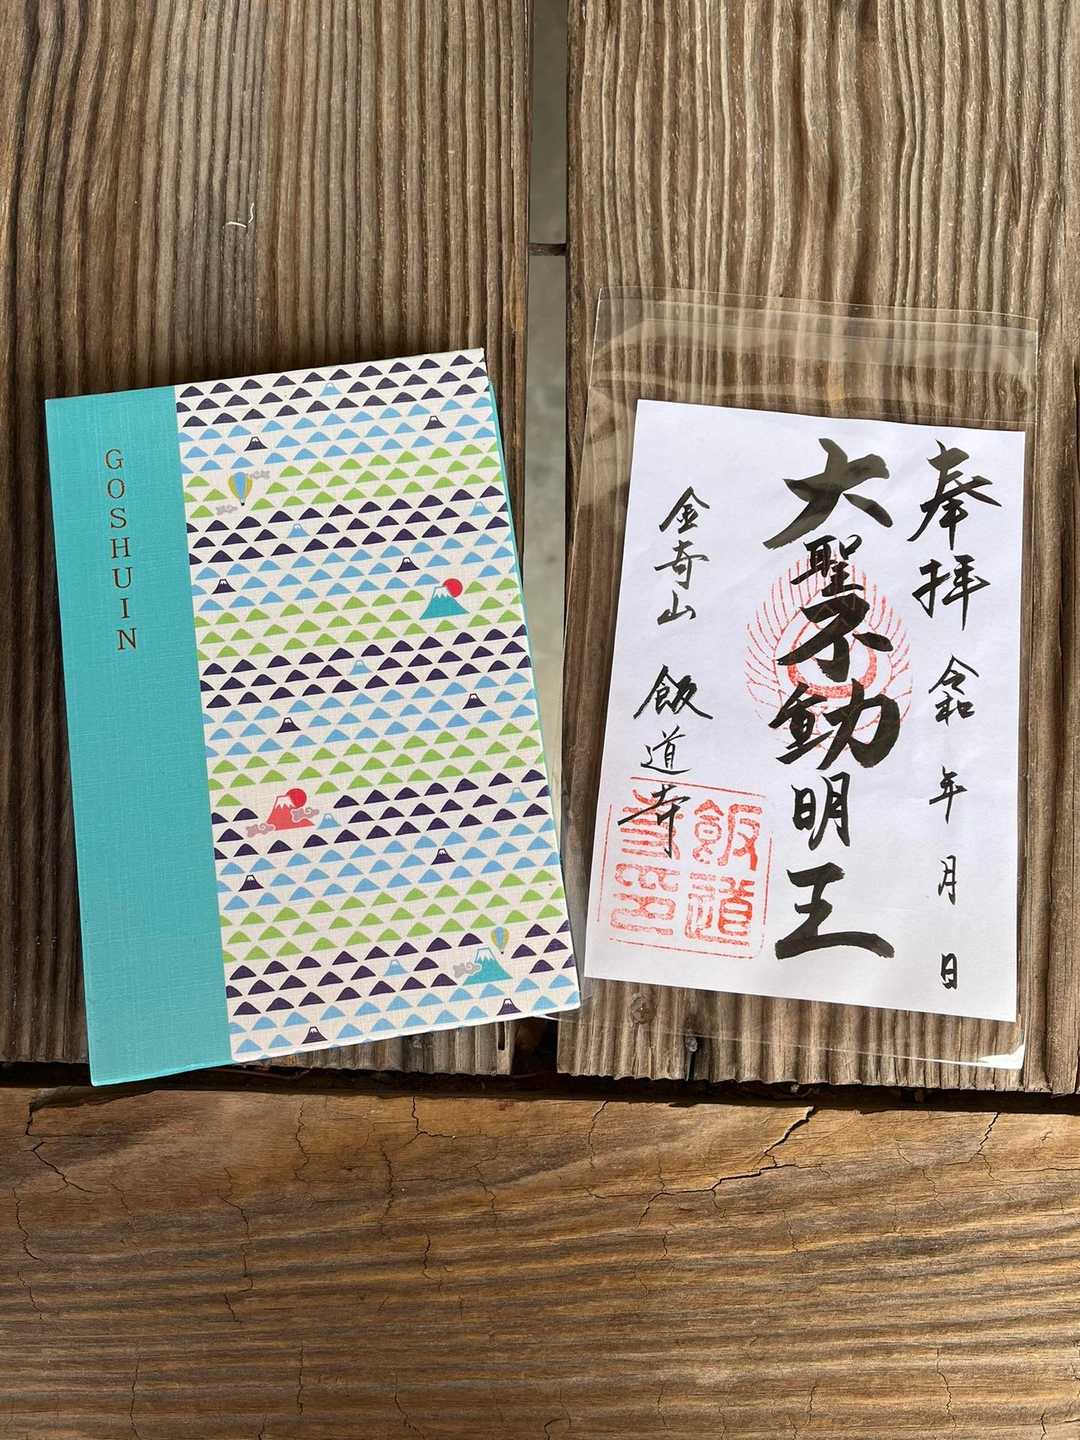 GOSHUIN
奉拝 令和 年 月 日
大聖不動明王
金奇山 飯道寺
飯道
寺印